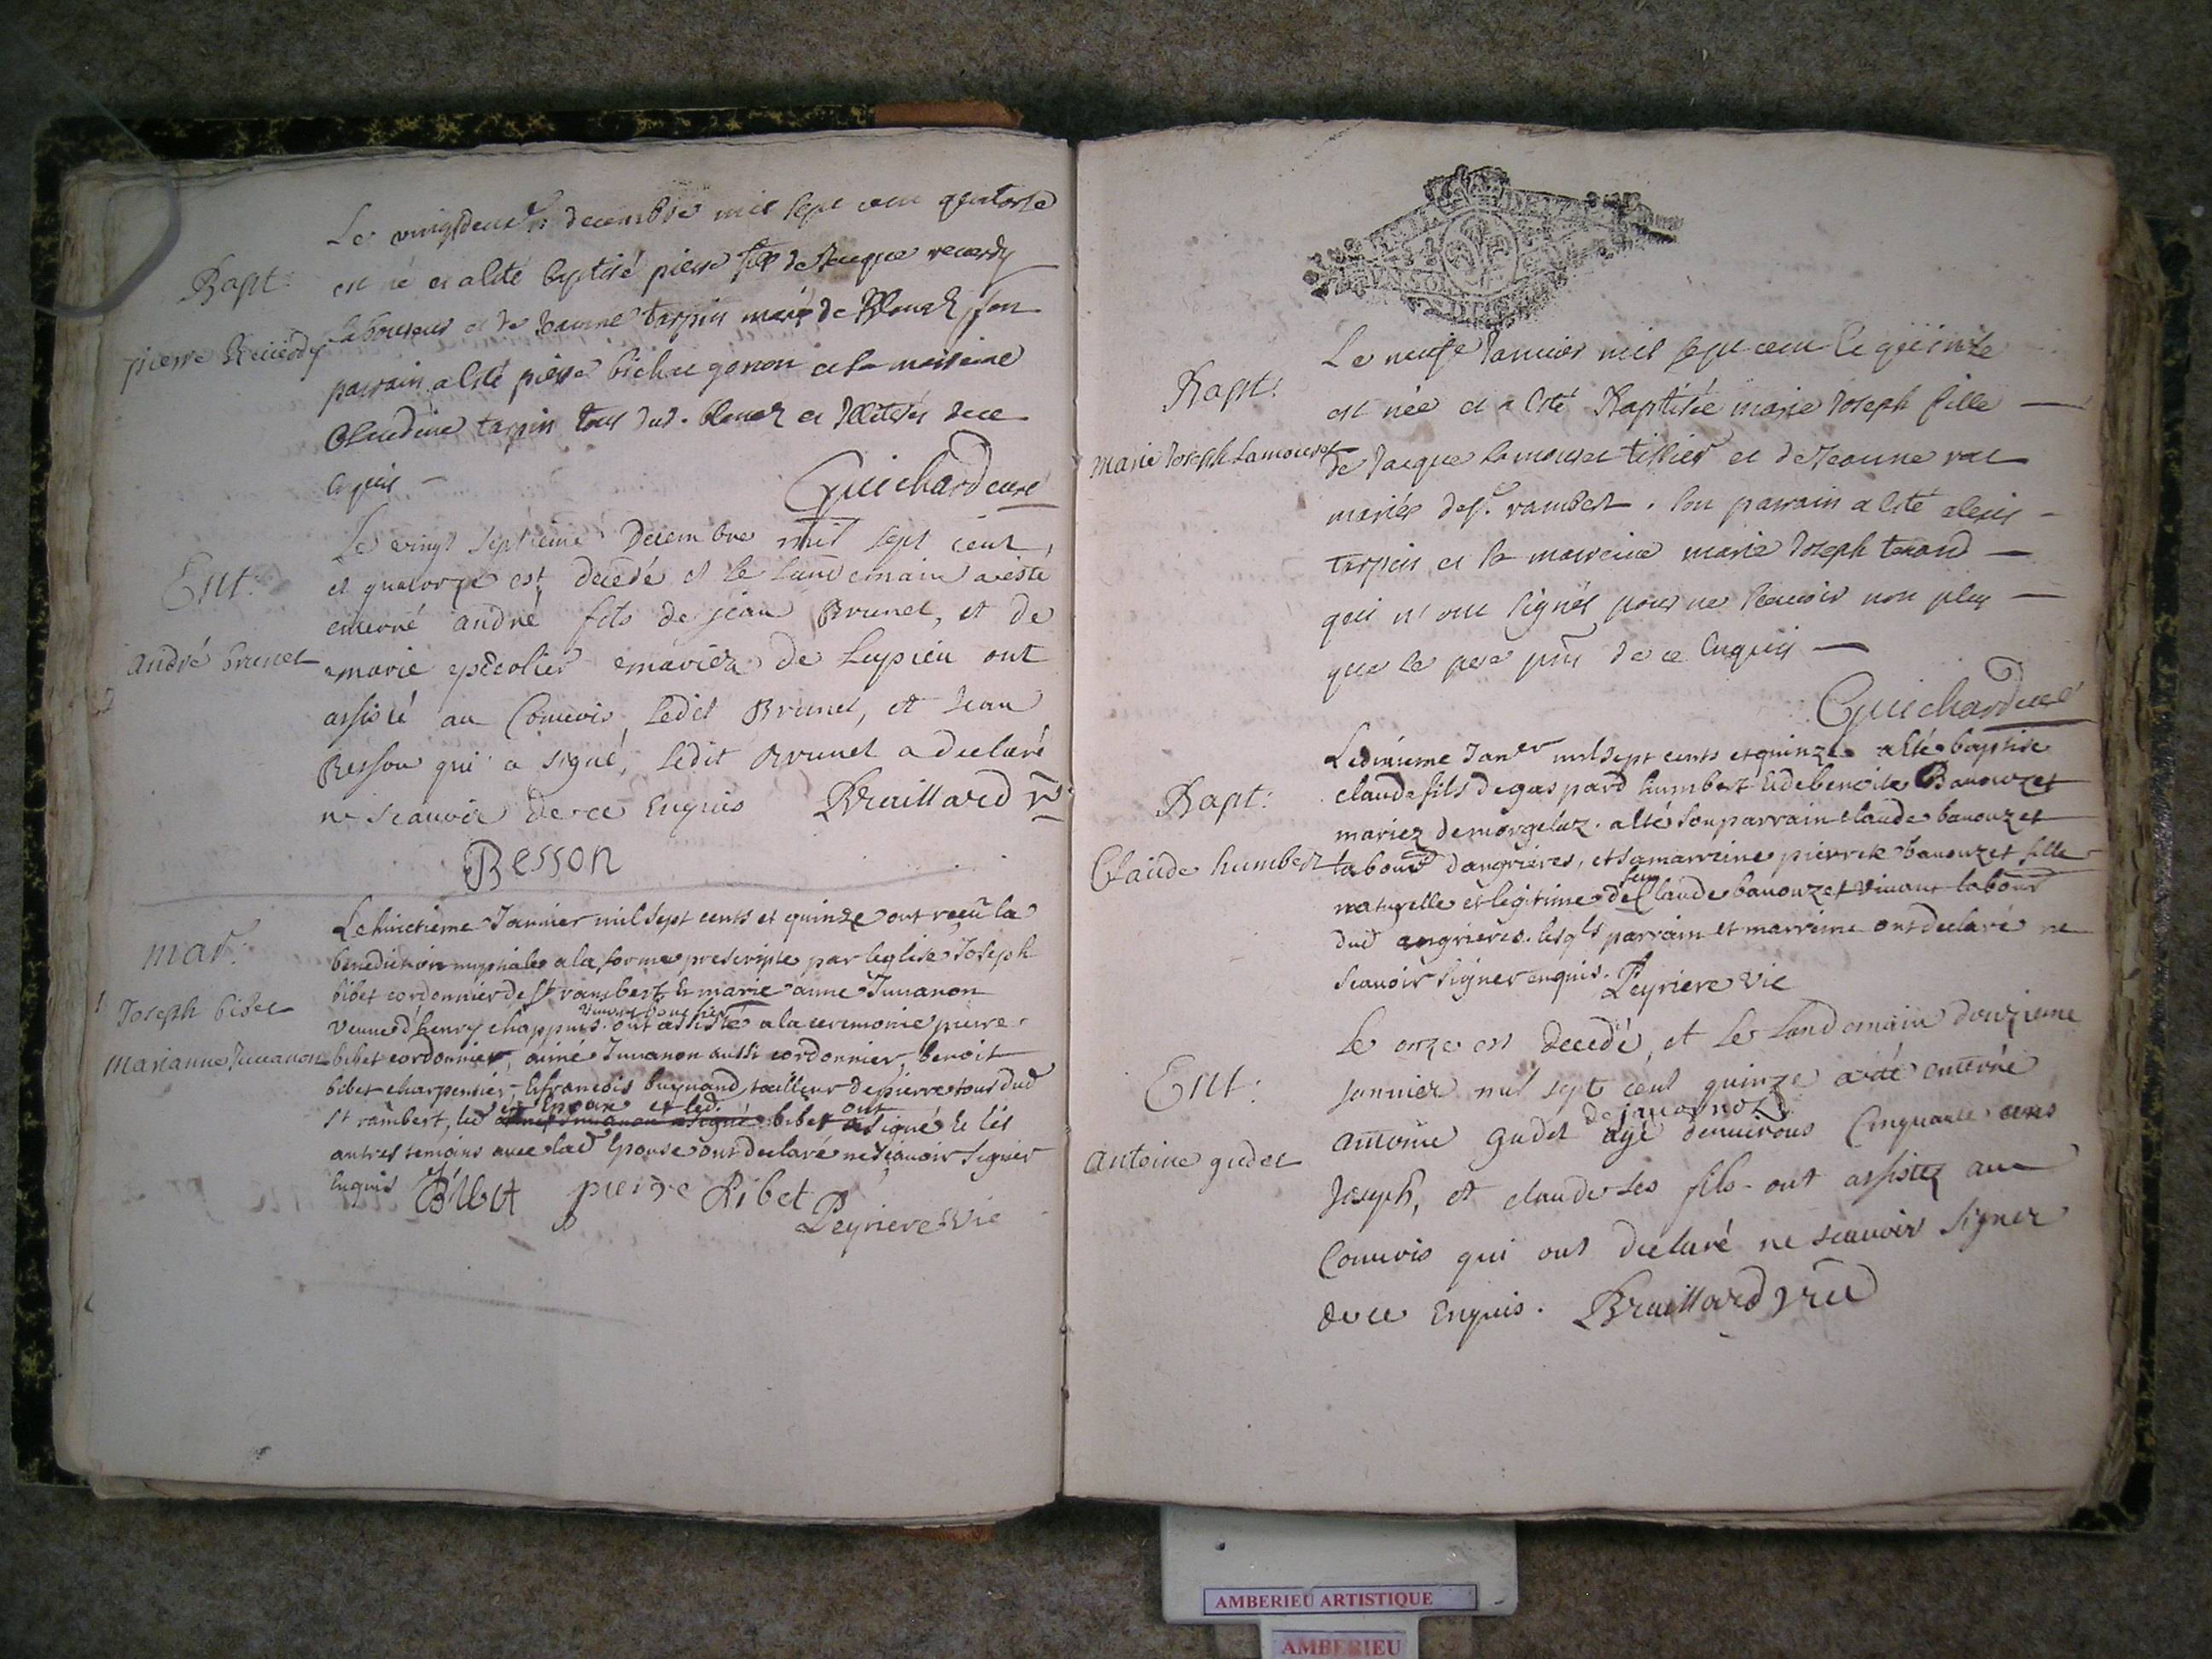 Bapt:
pierre Reverdy
Le vingtdeux decembre mil sept cent quatorse
est né et a esté baptisé pierre fils de Jacque reverdy
laboureur et de Jeanne tarpin mariés de Blanaz son
parrain a esté pierre bichat genon et la marreine
Claudine tarpin tous dud. blanaz et Illiterés de ce
enquis
Guichard curé
Ent:
andré brunet
Le vingt septieme Decembre mil sept cent,
et quatorze est decedé et le landemain a esté
enterré andré fils de jean Brunet, et de
marie mariez de Lupieu ont
assisté au Convois ledit Brunet, et Jean
Besson qui a signé, ledit Brunet a declaré
ne scauoir de ce Enquis Braillard v
Besson
mar:
Joseph bibet
Marianne Juuanon
Le huictieme Januier mil sept cents et quinze ont reçu la
benediction nuptiale a la forme prescripte par leglise Joseph
bibet cordonnier de st rambert, Et marie anne Juuanon
veuue d'henry chappuis viuant ont assisté a la ceremonie pierre
bibet cordonnier, aimé Juuanon aussi cordonnier, benoit
bibet charpentier, Et francois buynand tailleur de pierre tous dud
st rambert, led Epoux et led. bibet ont signé Et les
autres temoins auec lad Epouse ont declaré ne scauoir signer
Enquis
Bibet pierre Bibet
Peyriere Vic
Bapt:
marie Joseph Lamouret
Le neufe Januier mil sept cent et quinze
est née et a esté Baptisée marie Joseph fille
de Jacque Lamouret tissier et de Jeanne
mariés de st. rambert. son parrain a esté alexis
tarpin et la marreine marie Joseph tenand
qui n'ont signés pour ne scauoir non plus
que le pere pnt de ce Enquis
Guichard curé
Bapt:
Claude humbert
Le dixieme Janer mil sept cents et quinze a esté baptisé
claude fils de gaspard humbert Et de benoite Bauouzet
mariez de morgelaz. a esté son parrain claude bauouzet
labour d'angrieres, et sa marreine pierrete bauouzet fille
naturelle et legitime de feu Claude bauouzet viuant labour
dud angrieres. lesqls parrain et marreine ont declaré ne
scauoir signer enquis. Peyriere Vic
Ent:
antoine gudet
Le onze est decedé, et le landemain douzieme
januier mil sept cent quinze a été enterré
antoine gudet de jauornoz agé d'enuirons Cinquante ans
Joseph, et claude ses fils ont assistez au
Conuois qui ont declaré ne scauoir signer
de ce Enquis. Braillard vic
AMBERIEU ARTISTIQUE
AMBERIEU